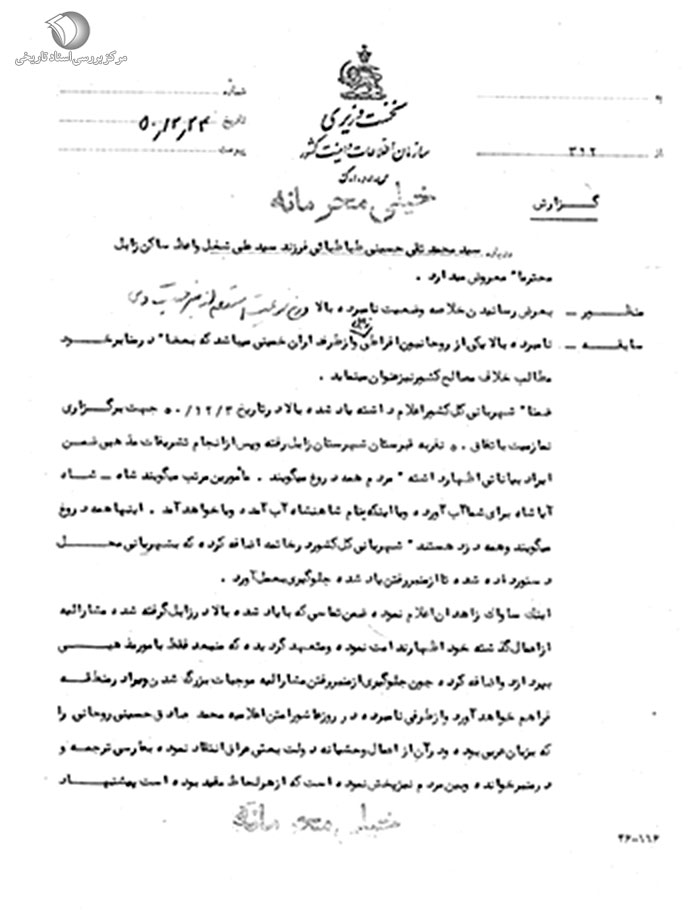 مرکز بررسی اسناد تاریخی
نخست وزیری
سازمان اطلاعات و امنیت کشور
شماره
تاریخ ۵۰/۱۲/۲۴
پیوست
به
از ۳۱۲
خیلی محرمانه
گزارش
درباره سید محمد تقی حسینی طباطبائی فرزند سید علی شغل واعظ ساکن زابل
محترما" معروض میدارد .
منظور ـ بعرض رسانیدن خلاصه وضعیت نامبرده بالا
سابقه ـ نامبرده بالا یکی از روحانیون افراطی زابل و از طرفداران خمینی میباشد که بعضا" در منابر خود
مطالب خلاف مصالح کشور نیز عنوان مینماید .
ضمنا" شهربانی کل کشور اعلام داشته یاد شده بالا در تاریخ ۵۰/۱۲/۳ جهت برگزاری
نماز میت با تفاق ۵۰ نفر به قبرستان شهرستان زابل رفته و پس از انجام تشریفات مذهبی ضمن
ایراد بیاناتی اظهار داشته " مردم همه دروغ میگویند . مأمورین مرتب میگویند شاه ـ شاه
آیا شاه برای شما آب آورده و یا اینکه بنام شاهنشاه آب آمده و یا خواهد آمد . اینها همه دروغ
میگویند و همه دزد هستند " شهربانی کل کشور در خاتمه اضافه کرده که بشهربانی محل
دستور داده شده تا از منبر رفتن یاد شده جلوگیری بعمل آورد .
اینک ساواک زاهدان اعلام نموده ضمن تماسی که با یاد شده بالا در زابل گرفته شده مشارالیه
از اعمال گذشته خود اظهار ندامت نموده و متعهد گردیده که منبعد فقط بامور مذهبی
بپردازد و اضافه کرده چون جلوگیری از منبر رفتن مشارالیه موجبات بزرگ شدن ویرا در منطقه
فراهم خواهد آورد و از طرفی نامبرده در روز عاشورا متن اعلامیه محمد صادق حسینی روحانی را
که بزبان عربی بوده و در آن از اعمال وحشیانه دولت بعثی عراق انتقاد نموده بفارسی ترجمه و
در منبر خوانده و بین مردم نیز پخش نموده است که از هر لحاظ مفید بوده است پیشنهاد
خیلی محرمانه
۲۶-۱۱۶